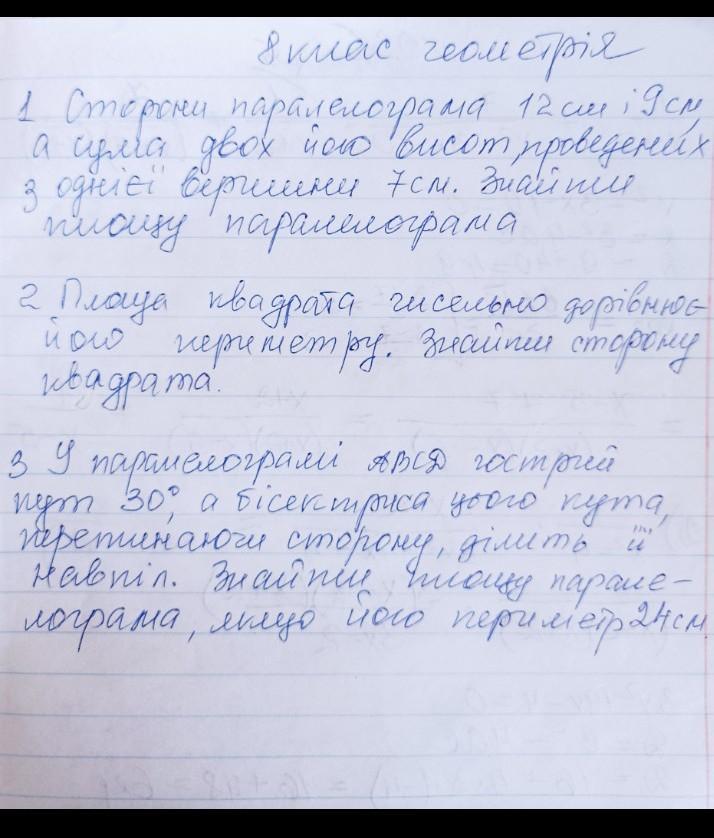 8 клас геометрія
1 Сторони паралелограма 12 см і 9 см,
а сума двох його висот, проведених
з однієї вершини 7 см. Знайти
площу паралелограма
2 Площа квадрата чисельно дорівнює
його периметру. Знайти сторону
квадрата.
3 У паралелограмі ABCD гострий
кут 30°, а бісектриса цього кута,
перетинаючи сторону, ділить її
навпіл. Знайти площу парале-
лограма, якщо його периметр 24 см